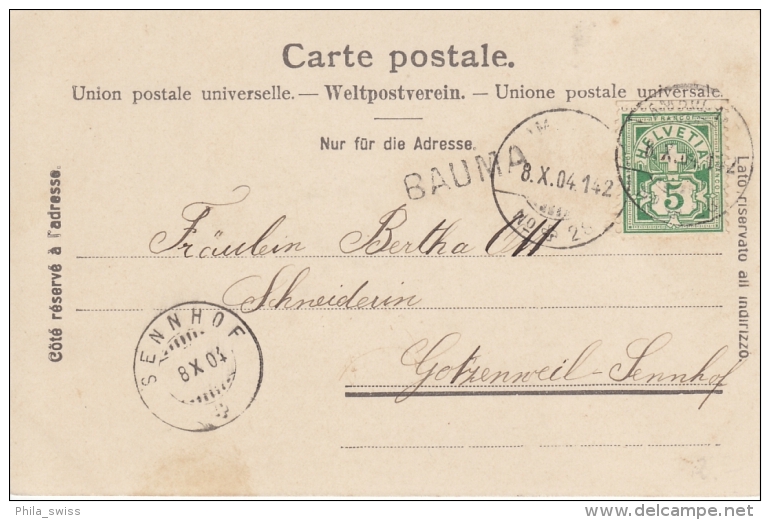 Carte postale.
Union postale universelle. — Weltpostverein. — Unione postale universale.
Nur für die Adresse.
Côté réservé à l'adresse.
Lato riservato all indirizzo.
BAUMA
8.X.04.142
No
FRANCO
HELVETIA
5
8.X.04.
Fräulein Bertha Ott
Schneiderin
Gotzenweil-Sennhof
SENNHOF
8 X 04
Phila_swiss
delcampe.net